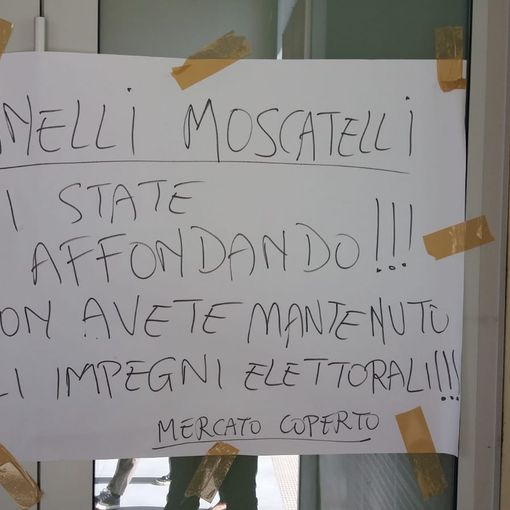 NELLI MOSCATELLI
I STATE
AFFONDANDO!!!
ON AVETE MANTENUTO
LI IMPEGNI ELETTORALI!!!
MERCATO COPERTO